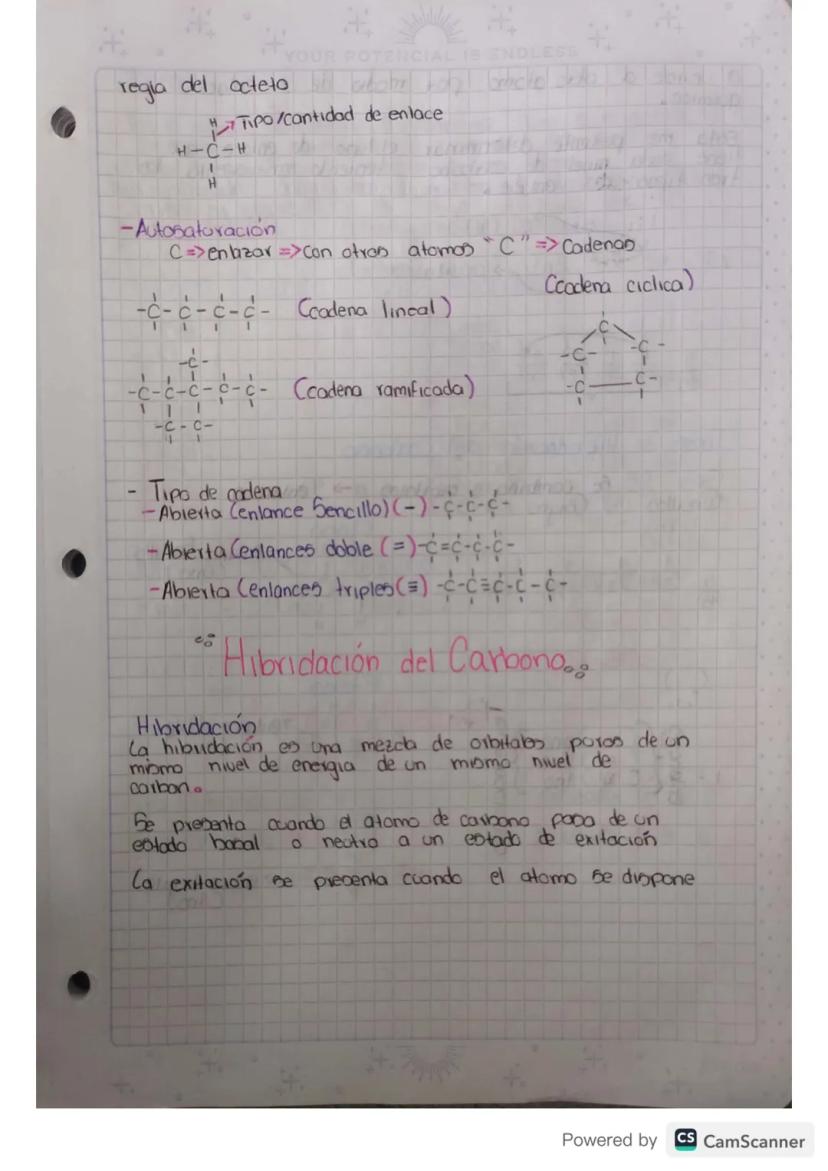 YOUR POTENCIAL IS ENDLESS
regla del octeto
H Tipo/cantidad de enlace
H-C-H
H
-Autosaturación
C=>enlazar=>con otros atomos "C" => Cadenas
(cadena ciclica)
-C-C-C-C- (cadena lineal)
-C-
-C-C-C-C-C- (cadena ramificada)
-C-C-
C
-C- -C-
-C—C-
- Tipo de cadena
-Abierta (enlance Sencillo) (-) -C-C-C-
-Abierta (enlances doble (=) -C=C-C-C-
-Abierta (enlances triples (≡) -C-C≡C-C-C-
Hibridación del Carbono
Hibridación
La hibridación es una mezcla de orbitales puros de un
mismo nivel de energia de un mismo nivel de
carbon.
Se presenta cuando el atomo de carbono pasa de un
estado basal o neutro a un estado de exitación
La exitación se presenta cuando el atomo se dispone
Powered by CS CamScanner